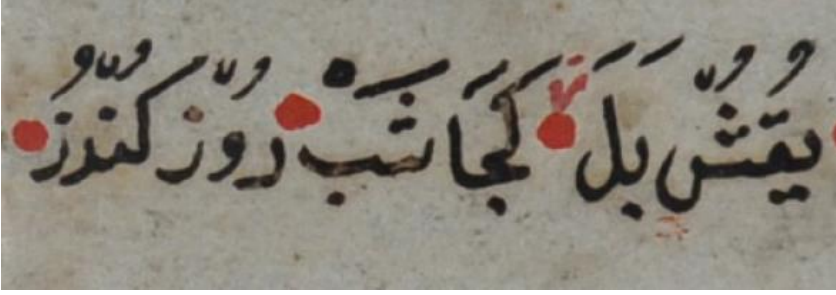 يُقُّش بَلَ كَجَا تَبْ دُوّز كَندُّزُ